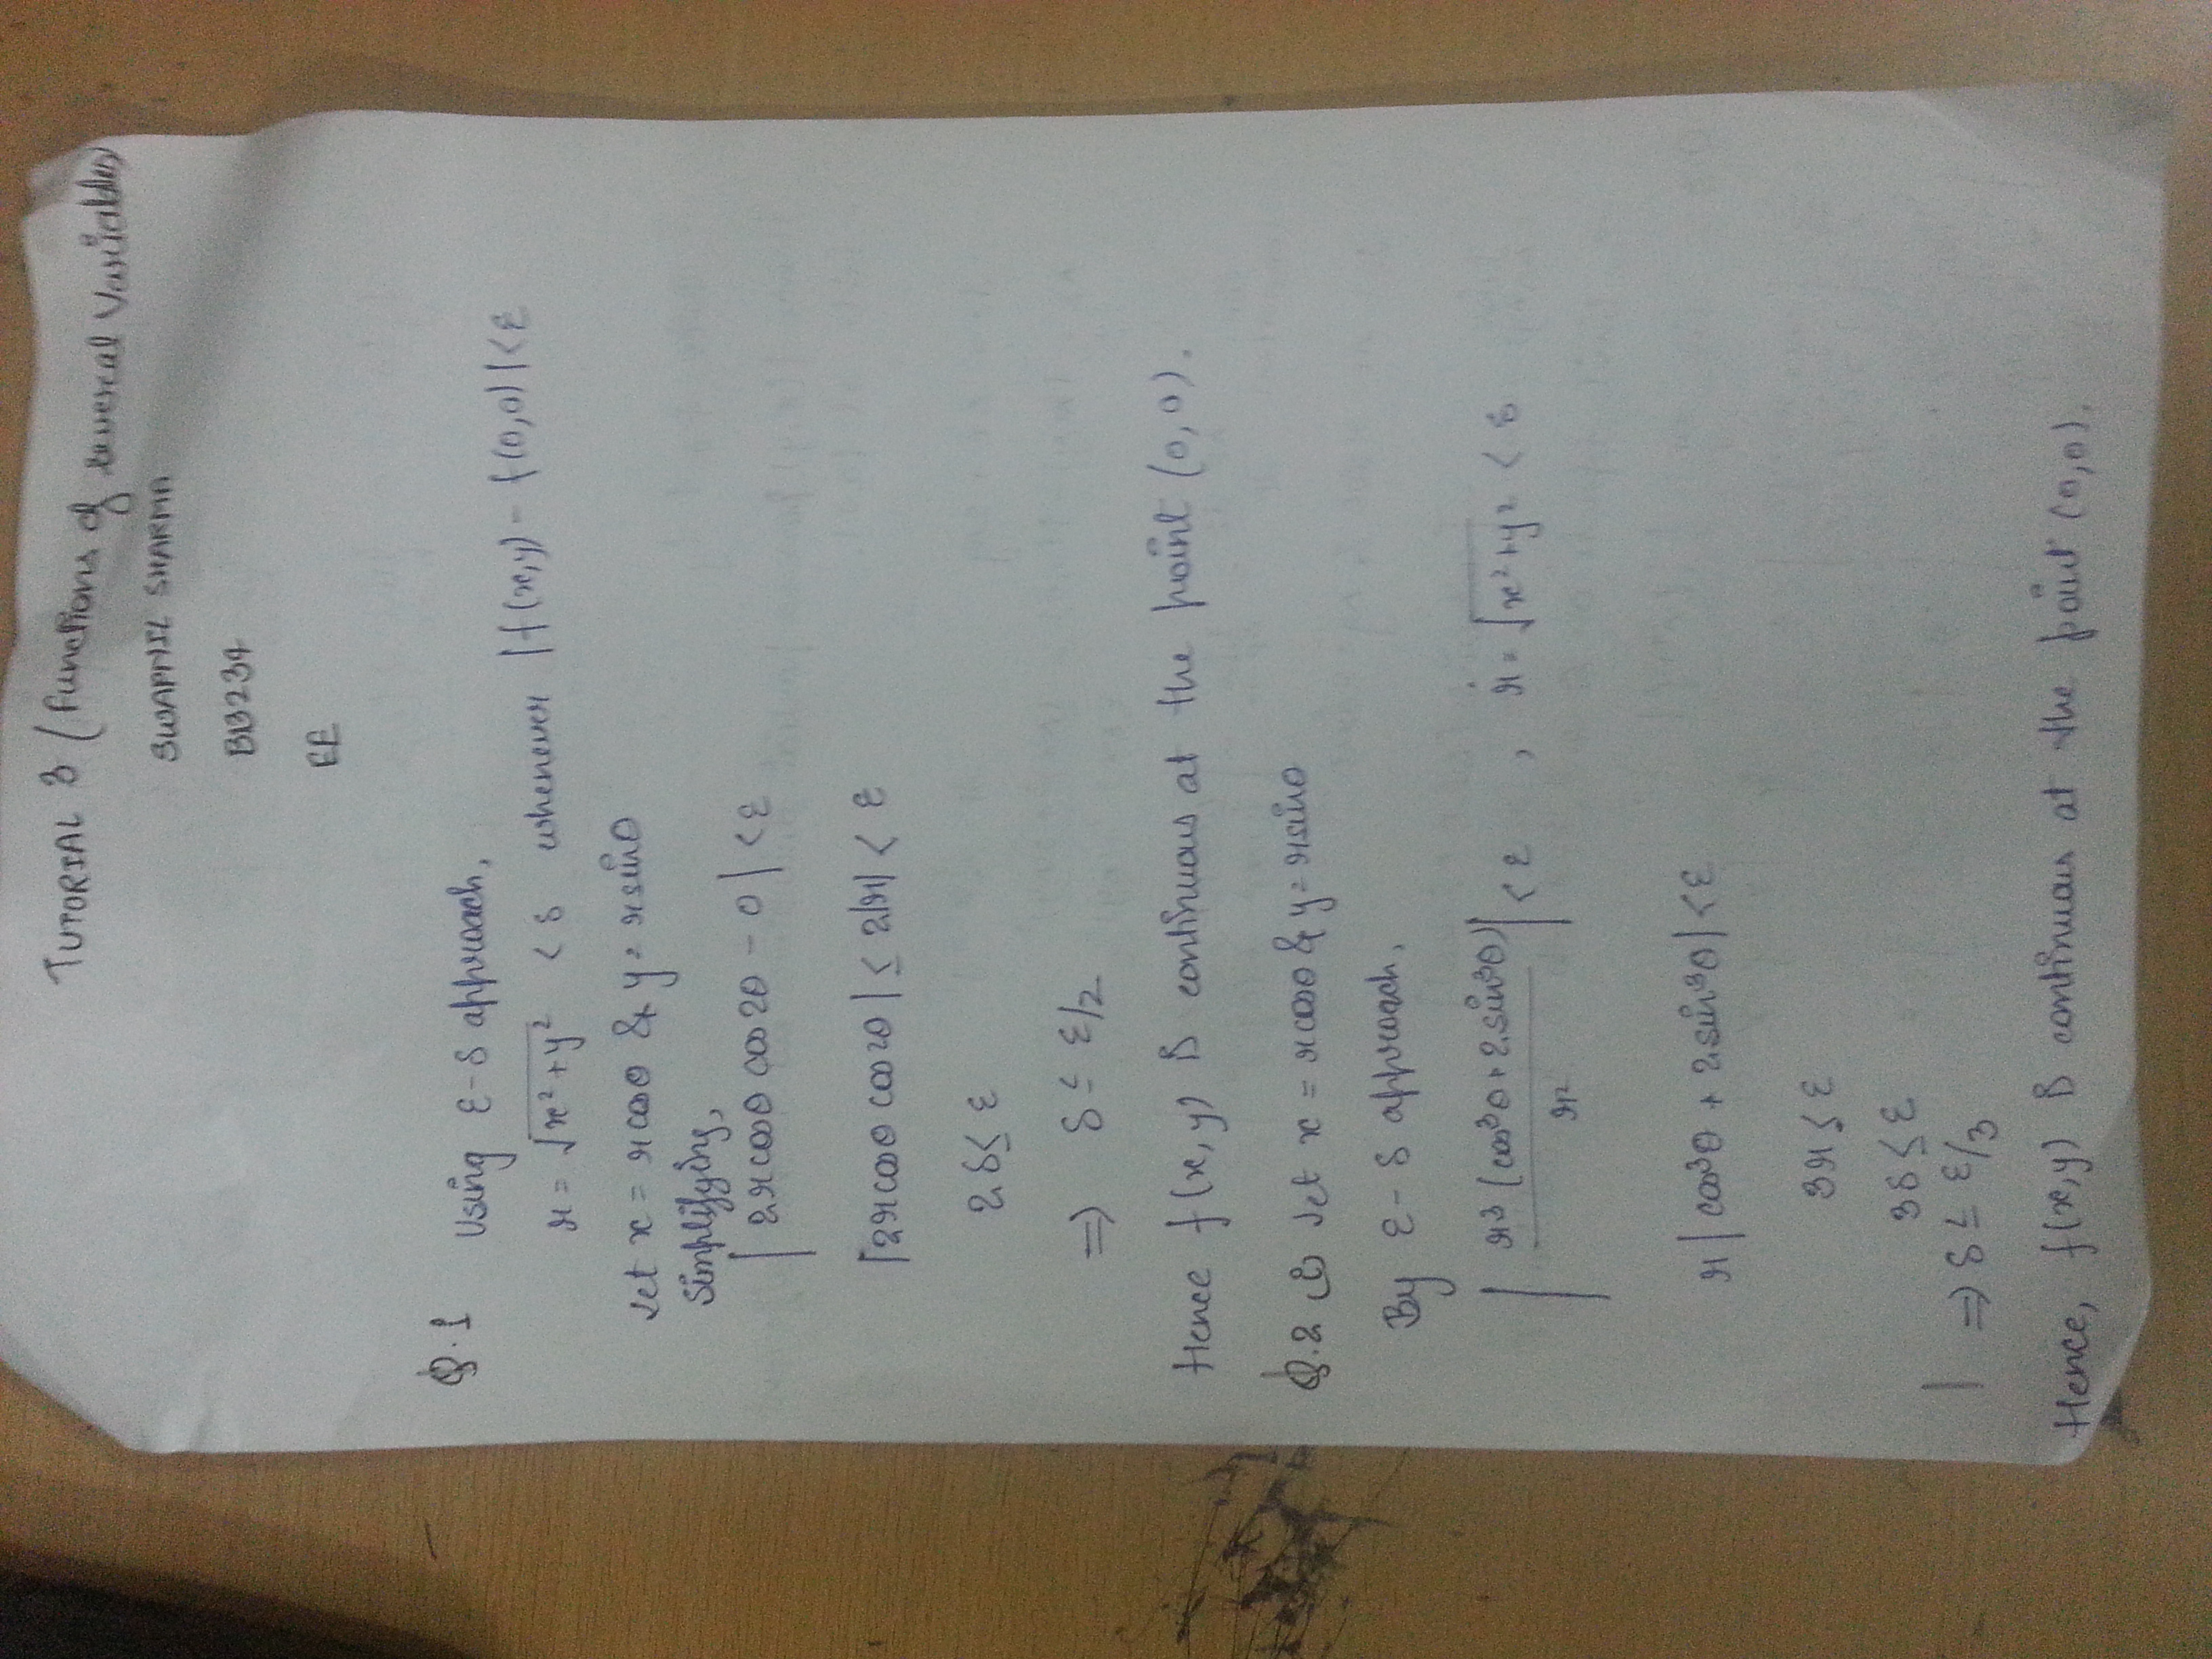 TUTORIAL 3 (Functions of several Variables)
SWAPNIL SHARMA
B13234
EE
Q.1 Using ε-δ approach,
r = √x²+y² < δ whenever |f(x,y) - f(0,0)| < ε
Let x = rcosθ & y = rsinθ
Simplifying,
|2rcosθ cos2θ - 0| < ε
|2rcosθ cos2θ| ≤ 2|r| < ε
2δ ≤ ε
⇒ δ ≤ ε/2
Hence f(x,y) is continuous at the point (0,0).
Q.2 (i) Let x = rcosθ & y = rsinθ
By ε-δ approach,
|r³(cos³θ + 2sin³θ)/r²| < ε , r = √x²+y² < δ
r|cos³θ + 2sin³θ| < ε
3r ≤ ε
3δ ≤ ε
⇒ δ ≤ ε/3
Hence, f(x,y) is continuous at the point (0,0).